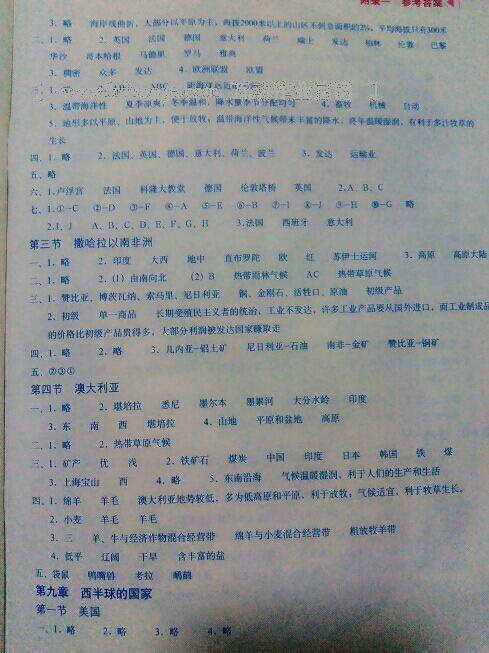 附录一 参考答案
3．略 海岸线曲折，大部分以平原为主，海拔2000米以上的山区不到总面积的2%，平均海拔只有300米
二、1．略 2．英国 法国 德国 意大利 荷兰 瑞士 发达 柏林 伦敦 巴黎
华沙 哥本哈根 马德里 罗马 雅典
3．稠密 众多 发达 4．欧洲联盟 欧盟
3．温带海洋性 夏季凉爽，冬季温和，降水量季节分配均匀 4．畜牧 机械 自动
5．地形多以平原、山地为主，便于放牧；温带海洋性气候带来丰富的降水，终年温暖湿润，有利于多汁牧草的
生长
四、1．略 2．法国、英国、德国、意大利、荷兰、波兰 3．发达 运输业
五、略
六、1．卢浮宫 法国 科隆大教堂 德国 伦敦塔桥 英国 2．A、B、C
七、1．①—C ②—D ③—F ④—A ⑤—E ⑥—B ⑦—I ⑧—J ⑨—H ⑩—G 略
2．I、J A、B、C、D、E、F、G、H 3．法国 西班牙 意大利
第三节 撒哈拉以南非洲
一、1．略 2．印度 大西 地中 直布罗陀 欧 红 苏伊士运河 3．高原 高原大陆
二、1．略 2．(1) 由南向北 (2) B 热带雨林气候 AC 热带草原气候
三、1．赞比亚、博茨瓦纳、索马里、尼日利亚 铜、金刚石、活牲口、原油 初级产品
2．初级 单一商品 长期受殖民主义者的统治，工业不发达，许多工业产品要从国外进口，而工业制成品
的价格比初级产品贵得多，大部分利润被发达国家赚取走
四、1．略 2．略 3．几内亚—铝土矿 尼日利亚—石油 南非—金矿 赞比亚—铜矿
五、②③①
第四节 澳大利亚
一、1．略 2．堪培拉 悉尼 墨尔本 墨累河 大分水岭 印度
3．东 南 西 堪培拉 4．山地 平原和盆地 高原
二、1．略 2．热带草原气候
三、1．矿产 优 浅 2．铁矿石 煤炭 中国 印度 日本 韩国 铁 煤
3．上海宝山 西 4．略 5．东南沿海 气候温暖湿润，利于人们的生产和生活
四、1．绵羊 羊毛 澳大利亚地势较低，多为低高原和平原，利于放牧；气候适宜，利于牧草生长。
2．小麦 羊毛 羊毛
3．三 羊、牛与经济作物混合经营带 绵羊与小麦混合经营带 粗放牧羊带
4．低平 辽阔 干旱 含丰富的盐
五、袋鼠 鸭嘴兽 考拉 鸸鹋
第九章 西半球的国家
第一节 美国
一、1．略 2．略 3．略 4．略